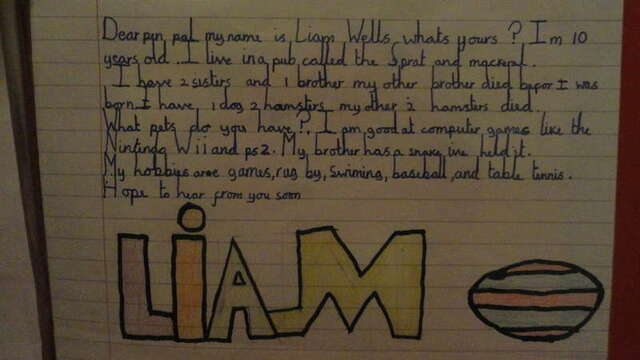 Dear pen pal my name is Liam Wells, whats yours? I m 10
years old. I live in a pub, called the Sprat and mackeral.
I have 2 sisters and 1 brother my other brother died befor I was
born. I have 1 dog 2 hamsters my other 2 hamsters died.
What pets do you have? I am good at computer games like the
Nintindo Wii and ps2. My brother has a snake, ive held it.
My hobbies are games, rug by, swiming, baseball, and table tennis.
Hope to hear from you soon
LiAM